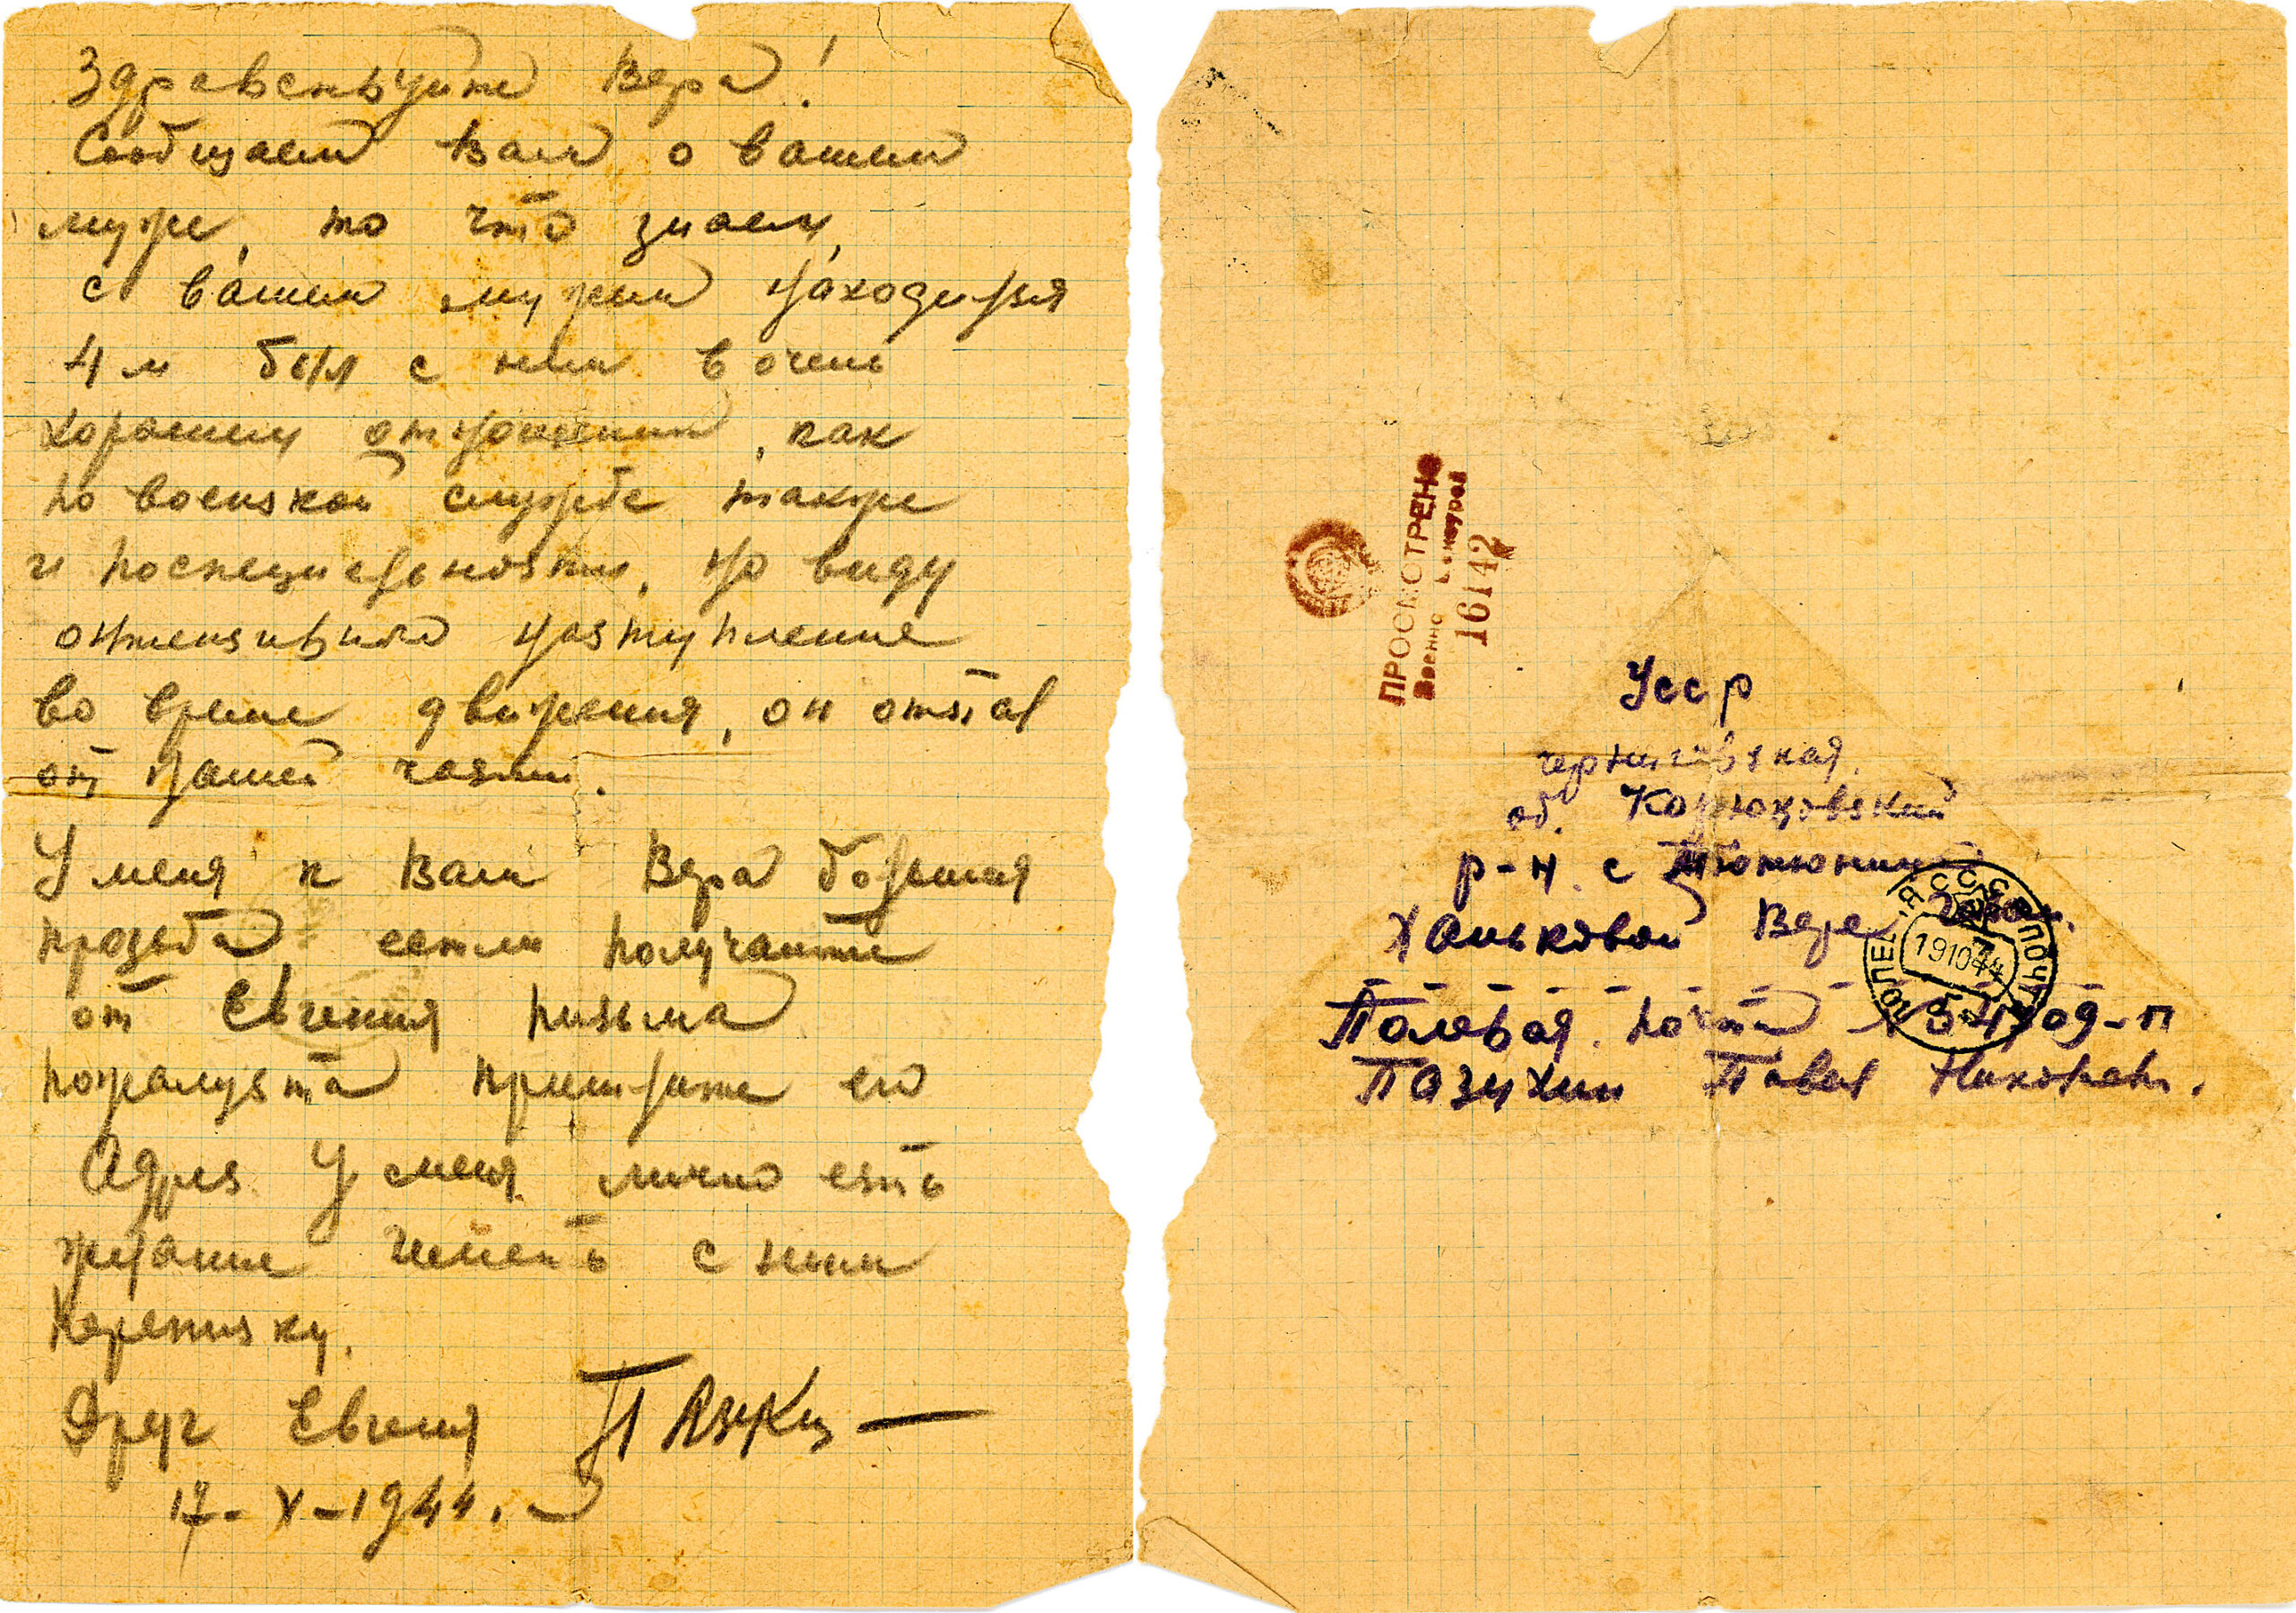 Здравствуйте Вера!
Сообщаем Вам о вашем
муже, то что знаем,
с вашим мужем находился
4 м был с ним в очень
хорошем отношении, как
по военской службе также
и поспециальности, но виду
интенсивного наступление
во время движения, он отстал
от нашей части.
У меня к Вам Вера большая
прозьба, если получаите
от Евгения письма
пожалуста пришлите его
Адрес. У меня лично есть
желание иметь с ним
Переписку.
Друг Евгения
17-X-1944.
ПРОСМОТРЕНО
Военной Цензурой
16142
Усср
черниговская.
об. Корюковский
р-н. с Тютюница
Ханьковой Вере
19 10 44
ПОЧТА
Полевая почта 54709-п
Пазухин Павел